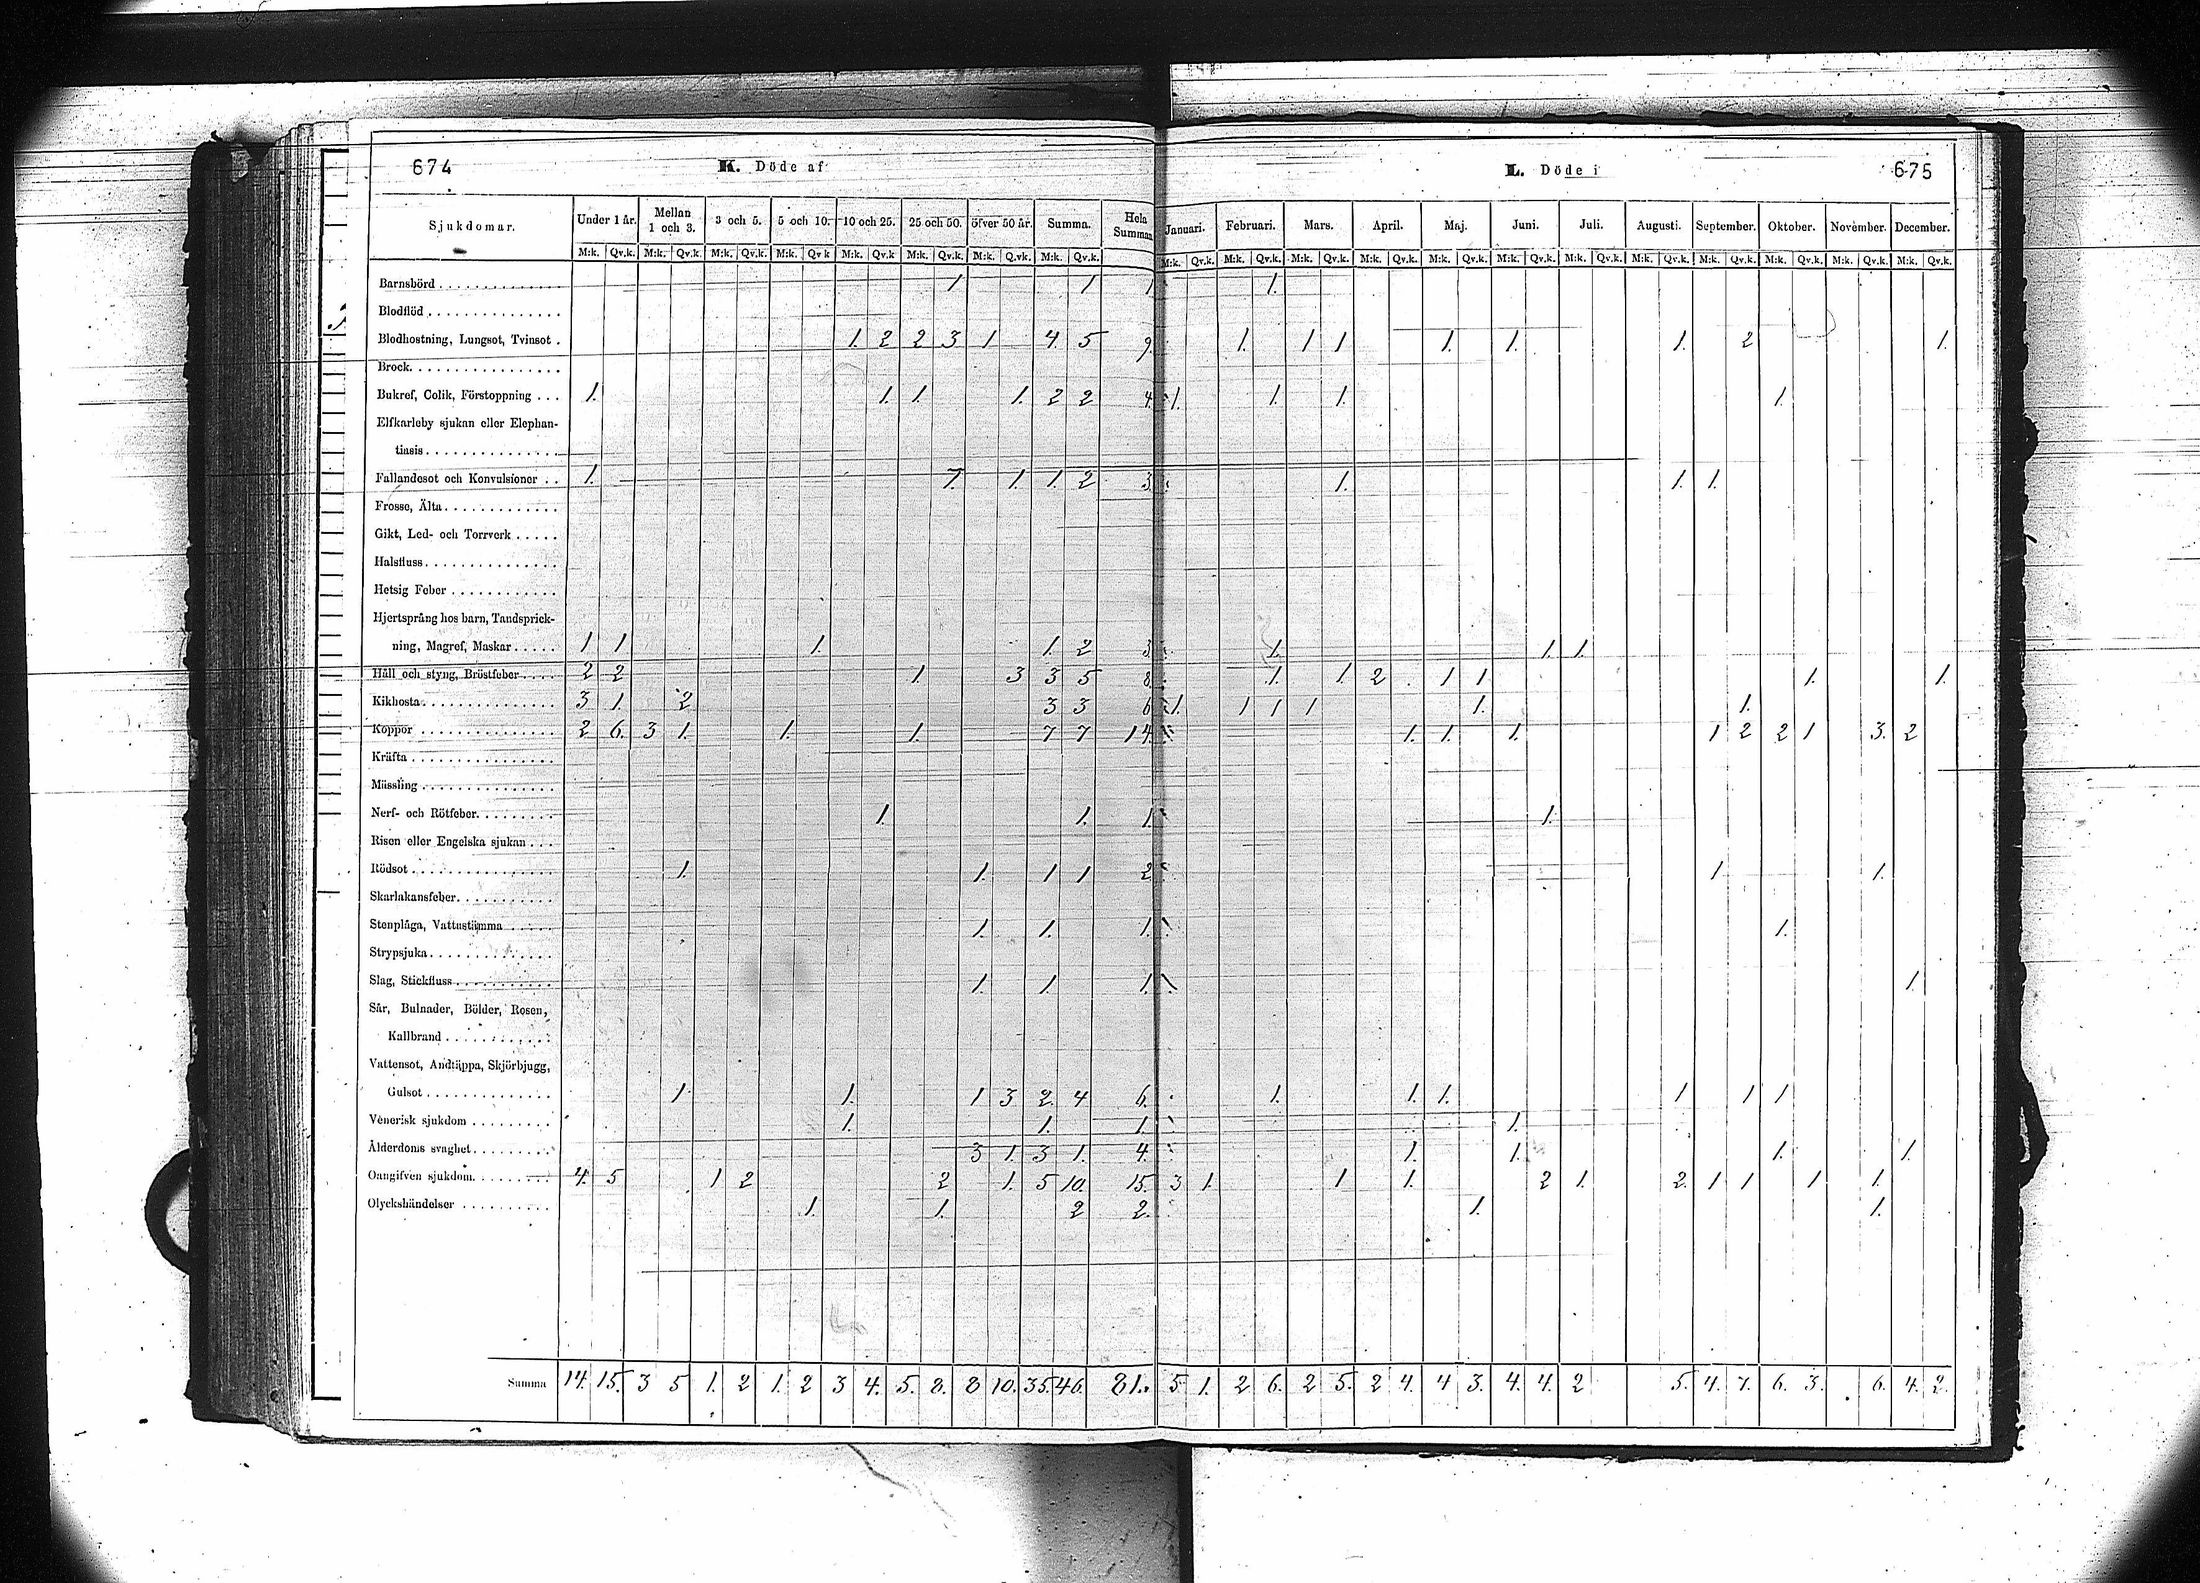 674 K. Döde af L. Döde i 675
Sjukdomar. Under 1 år. Mellan 1 och 3. 3 och 5. 5 och 10. 10 och 25. 25 och 50. öfver 50 år. Summa. Hela Summan Januari. Februari. Mars. April. Maj. Juni. Juli. Augusti. September. Oktober. November. December.
M:k. Qv.k. M:k. Qv.k. M:k. Qv.k. M:k. Qv.k M:k. Qv.k M:k. Qv.k. M:k. Qv.k. M:k. Qv.k. M:k. Qv.k. M:k. Qv.k. M:k. Qv.k. M:k. Qv.k. M:k. Qv.k. M:k. Qv.k. M:k. Qv.k. M:k. Qv.k. M:k. Qv.k. M:k. Qv.k. M:k. Qv.k. M:k. Qv.k.
Barnsbörd 1 1 1 1.
Blodflöd
Blodhostning, Lungsot, Tvinsot . 1. 2 2 3 1 4 5 9. 1. 1 1 1. 1. 1. 2 1.
Brock
Bukref, Colik, Förstoppning . . . 1. 1. 1. 1. 2 2 4. 1. 1. 1. 1.
Elfkarleby sjukan eller Elephan-
tiasis
Fallandesot och Konvulsioner . . 1. 1. 1. 1. 2 3. 1. 1. 1.
Frosse, Älta
Gikt, Led- och Torrverk
Halsfluss
Hetsig Feber
Hjertsprång hos barn, Tandsprick-
ning, Magref, Maskar 1 1 1. 1. 2 3. 1. 1. 1.
Håll och styng, Bröstfeber 2 2 1. 3 3 5 8. 1. 1. 2 1 1 1. 1.
Kikhosta 3 1. 2 3 3 6 1. 1 1 1 1. 1.
Koppor 2 6. 3 1. 1. 1. 7 7 14. 1. 1. 1. 1 2 2 1 3. 2
Kräfta
Mässling
Nerf- och Rötfeber. 1. 1. 1. 1.
Risen eller Engelska sjukan . . .
Rödsot 1. 1. 1 1 2 1 1.
Skarlakansfeber.
Stenplåga, Vattustämma 1. 1. 1. 1.
Strypsjuka
Slag, Stickfluss 1. 1. 1. 1.
Sår, Bulnader, Bölder, Rosen,
Kallbrand
Vattensot, Andtäppa, Skjörbjugg,
Gulsot 1. 1. 1 3 2. 4 6. 1. 1. 1. 1 1 1
Venerisk sjukdom 1. 1. 1. 1.
Ålderdoms svaghet 3 1. 3 1. 4. 1. 1. 1. 1.
Oangifven sjukdom. 4. 5 1 2 2 1. 5 10. 15. 3 1. 1 1. 2 1. 2. 1 1 1 1.
Olyckshändelser 1. 1. 2 2. 1. 1.
Summa 14. 15. 3 5 1. 2 1. 2 3 4. 5. 8. 8 10. 35. 46. 81. 5. 1. 2 6. 2 5. 2 4. 4 3. 4. 4. 2 5. 4. 7. 6. 3. 6. 4. 2.